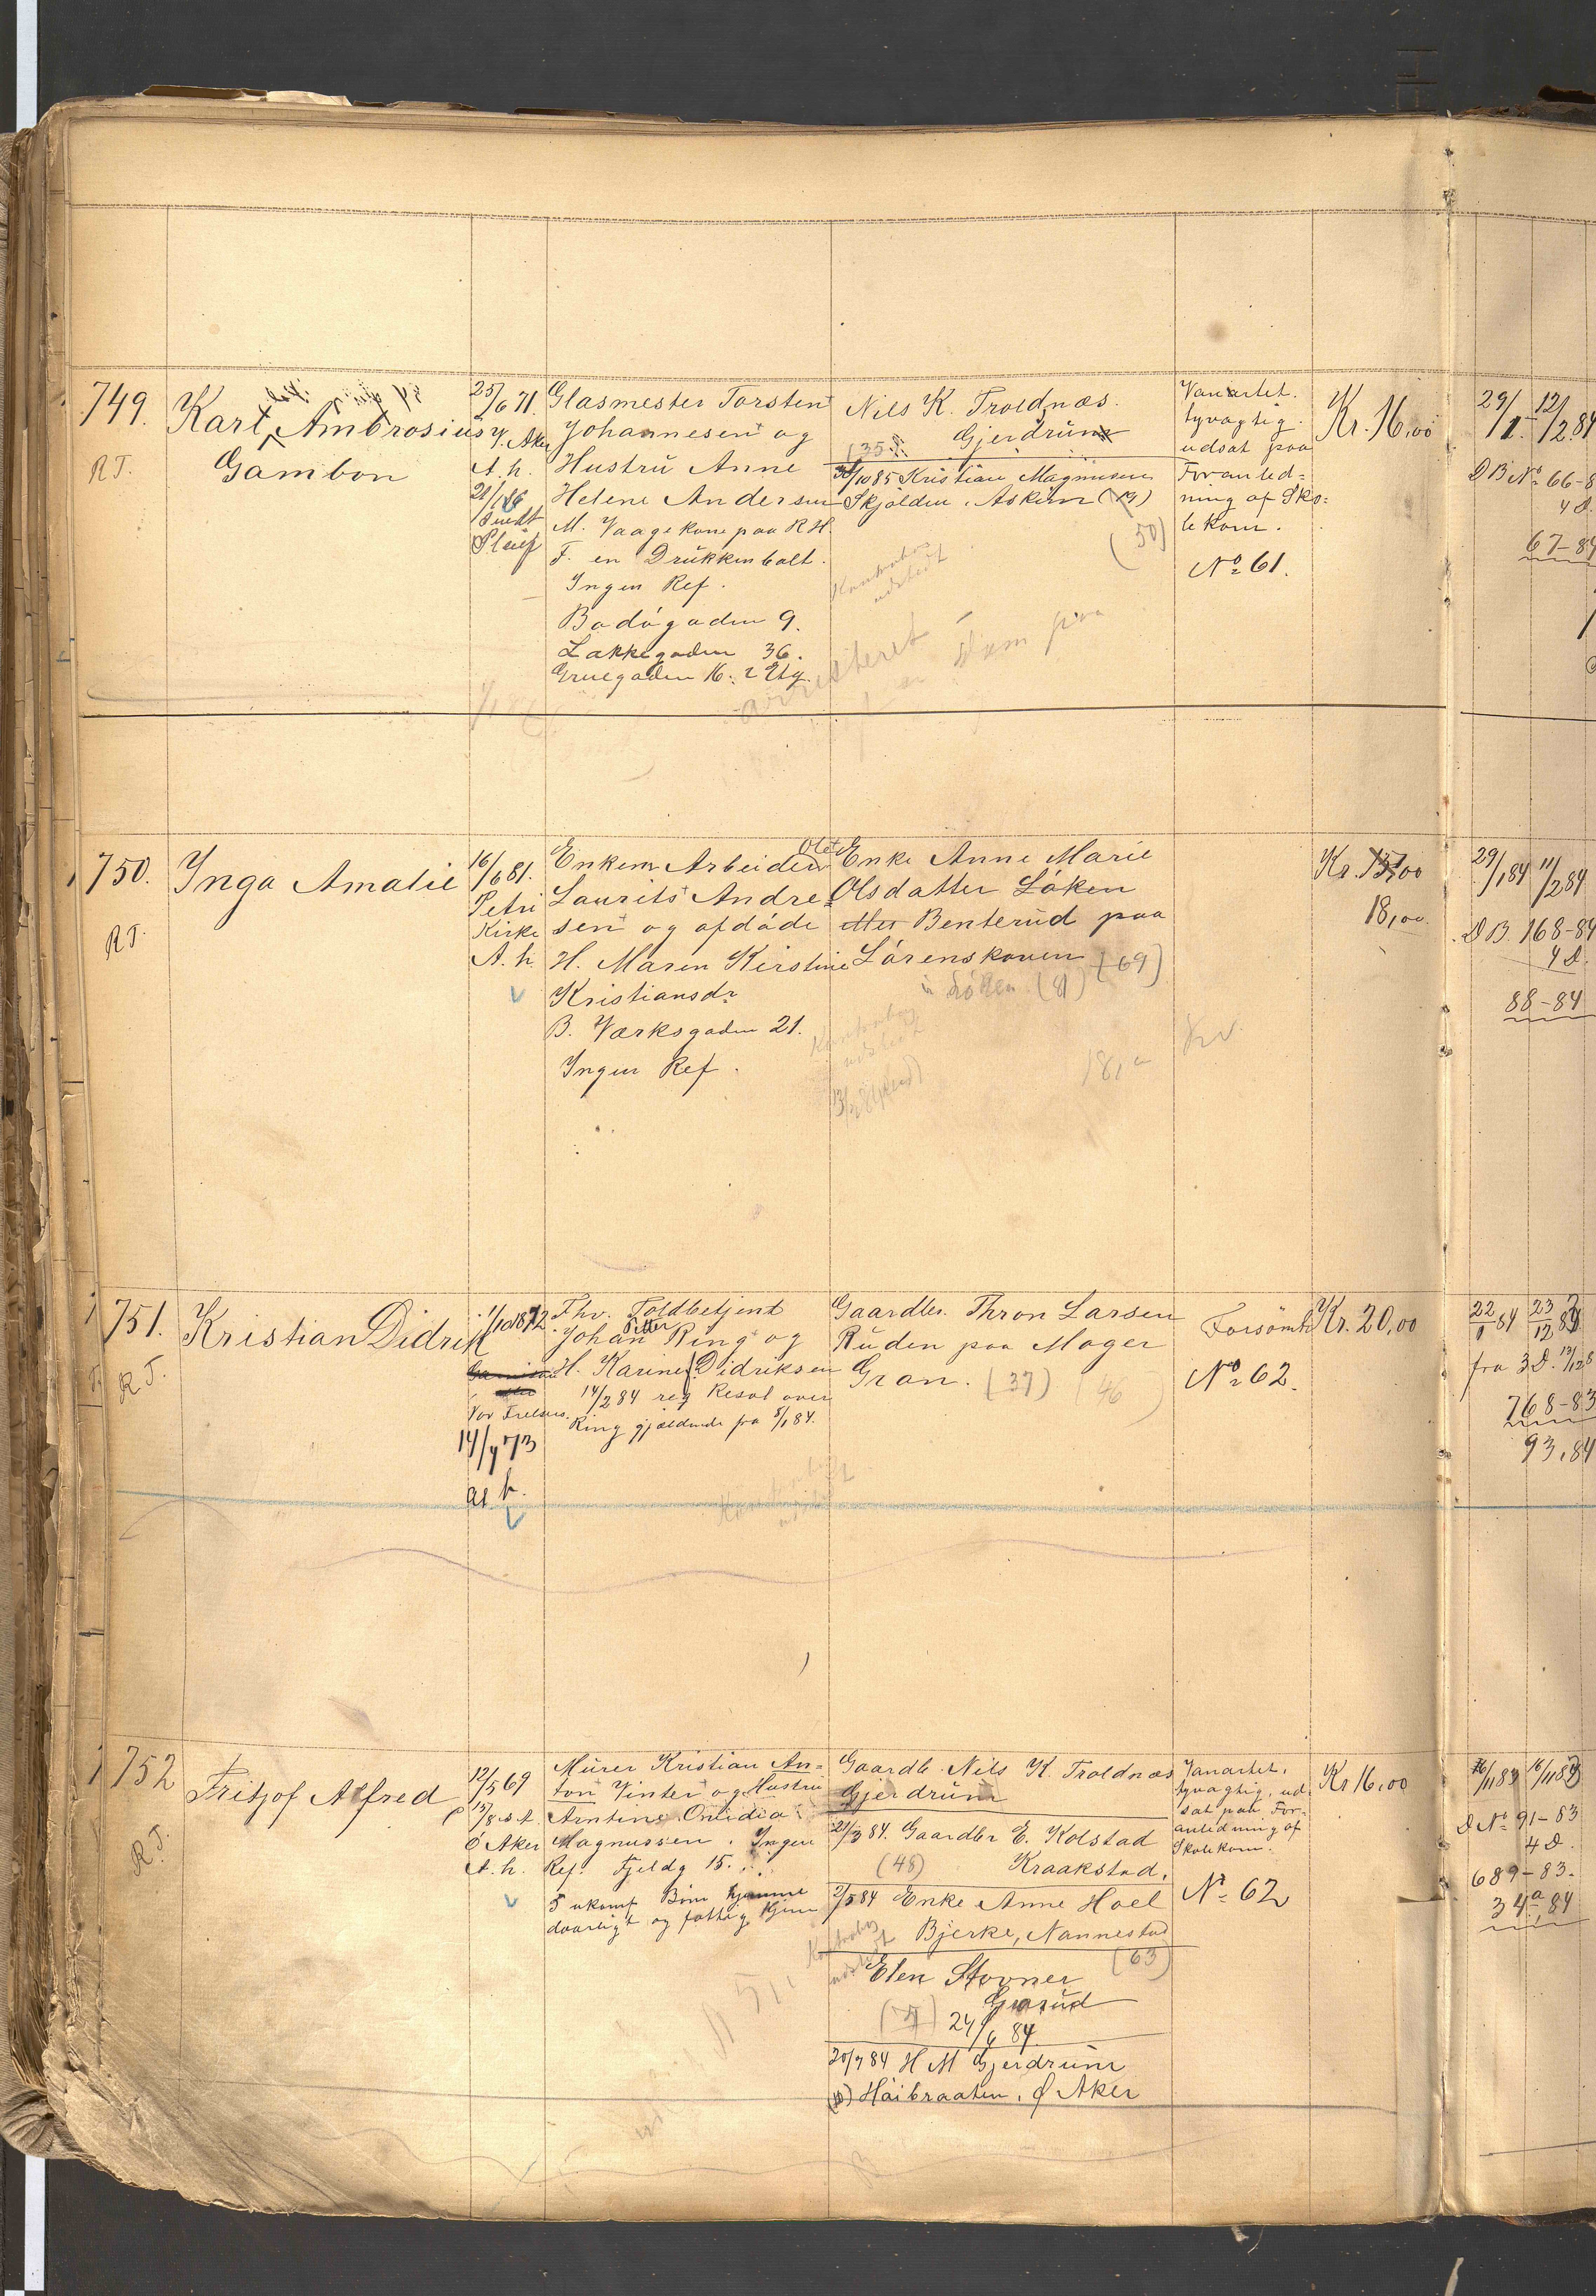 749.
R T.
Karl Ambrosius
Gambon
25/6 71.
V. Aker
A. h.
21/1 86
Sendt
Glasmester Torsten
Johannesen og
Hustru Anne
Helene Andersen
M. Vaagekone paa R H.
F. en Drukkenbolt.
Ingen Ref.
Bodøgaden 9.
Lakkegaden 36.
Gruegaden 16. 2 Etg.
Nils K. Troldnæs.
Gjerdrum
(35)
30/10 85 Kristian Magnussen
Skjolden, Askim (19)
(50)
Kontrabog
udstedt
arresteret
Dom paa
Vanartet.
tyvagtig.
udsat paa
Foranled=
ning af Sko=
lekom.
No 61.
Kr. 16,00
29/1. 12/2 84
D B No 66-8
4 D.
67-84
750.
R T.
Inga Amalie
16/6 81.
Petri
Kirke
A. h
Enkem Arbeider Olet
Laurits Andre=
sen og afdøde
H. Maren Kirstine
Kristiansdr
B. Værksgaden 21.
Ingen Ref.
Enke Anne Marie
Olsdatter Løken
Benterud paa
Lørenskoven (69)
Løken (81)
Kontrabog
udstedt
Kr. 15,00
18,00.
29/1 84 11/2 84
D B. 168-84
4 D.
88-84
751.
R T.
Kristian Didrik
1/10 1872
Vor Frelsers.
14/4 73
A. h.
Fhv. Toldbetjent
Johan Petter Ring og
H. Karine Didriksen
14/2 84 reg Resol over
Ring gjældende fra 8/1 84.
Gaardbr. Thron Larsen
Ruden paa Moger
Gran. (37) (46)
Kontrabog
udstedt
Forsømt
No 62.
Kr. 20,00
22/1 84 23/12 83
fra 3 D. 13/12 8
768-83
93.84
752
R T.
Fritjof Alfred
12/5 69
15/8 s. A.
Ø Aker
A. h.
Murer Kristian An=
ton Vinter og Hustru
Arntine Onlidia
Magnussen. Ingen
Ref. Fjeldg 15.
5 ukonf Børn hjemme
daarligt og fattig Hjem
Gaardb. Nils K. Troldnæs
Gjerdrum
21/3 84. Gaardbr E. Kolstad
(48) Kraakstad.
2/5 84 Enke Anne Hoel
Bjerke, Nannestad
(63)
Kontrabog
udstedt
Elen Stovner
Grorud
24/6 84
20/9 84 H M Gjerdrum
Høibraaten, Ø Aker
Vanartet,
tyvagtig, ud
sat paa For-
anledning af
Skolekom.
No 62
Kr 16,00
16/11 83 16/11 83
D No 91-83
4 D.
689-83.
34a,84